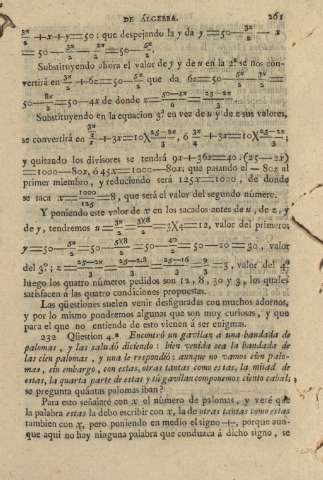 DE ÁLGEBRA. 261
3x/2 + x + y = 50 : que despejando la y da y = 50 − 3x/2 − x
= 50 − 3x/2 − 2x/2 = 50 − 5x/2.
Substituyendo ahora el valor de y y de u en la 2.ª se nos con-
vertirá en 3x/2 + 6z = 50 − 5x/2 que da 6z = 50 − 5x/2 − 3x/2 =
50 − 8x/2 = 50 − 4x de donde z = 50−4x/6 = 25−2x/3.
Substituyendo en la equacion 3.ª en vez de u y de z sus valores,
se convertirá en + 3x = 10 X 25−2x/3, ó 3x/4 + 3x = 10 X 25−2x/3;
y quitando los divisores se tendrá 9x + 36x = 40.(25−2x)
= 1000 − 80x, ó 45x = 1000 − 80x; que pasando el − 80x al
primer miembro, y reduciendo será 125x = 1000, de donde
se saca x = 1000/125 = 8, que será el valor del segundo número.
Y poniendo este valor de x en los sacados antes de u, de z, y
de y, tendremos u = 3x/2 = 3X8/2 = 3X4 = 12, valor del primero;
y = 50 − 5x/2 = 50 − 5X8/2 = 50 − 40/2 = 50 − 20 = 30, valor
del 3.º; z = 25−2x/3 = 25−2.8/3 = 25−16/3 = 9/3 = 3, valor del 4.º
luego los quatro números pedidos son 12, 8, 30 y 3, los quales
satisfacen á las quatro condiciones propuestas.
Las qüestiones suelen venir desfiguradas con muchos adornos,
y por lo mismo pondremos algunas que son muy curiosas, y que
para el que no entiende de esto vienen á ser enigmas.
232 Qüestion 4.ª Encontró un gavilan á una bandada de
palomas, y las saludó diciendo : bien venida sea la bandada de
las cien palomas, y una le respondió; aunque no vamos cien palo-
mas, sin embargo, con estas, otras tantas como estas, la mitad de
estas, la quarta parte de estas y tú gavilan componemos ciento cabal;
se pregunta quántas palomas iban?
Para esto señalaré con x el número de palomas, y veré que
la palabra estas la debo escribir con x, la de otras tantas como estas
tambien con x, pero poniendo en medio el signo +, porque aun-
que aquí no hay ninguna palabra que conduzca á dicho signo, se